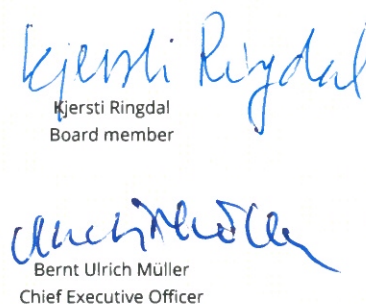 Kjersti Ringdal
Kjersti Ringdal
Board member
Bernt Ulrich Müller
Chief Executive Officer